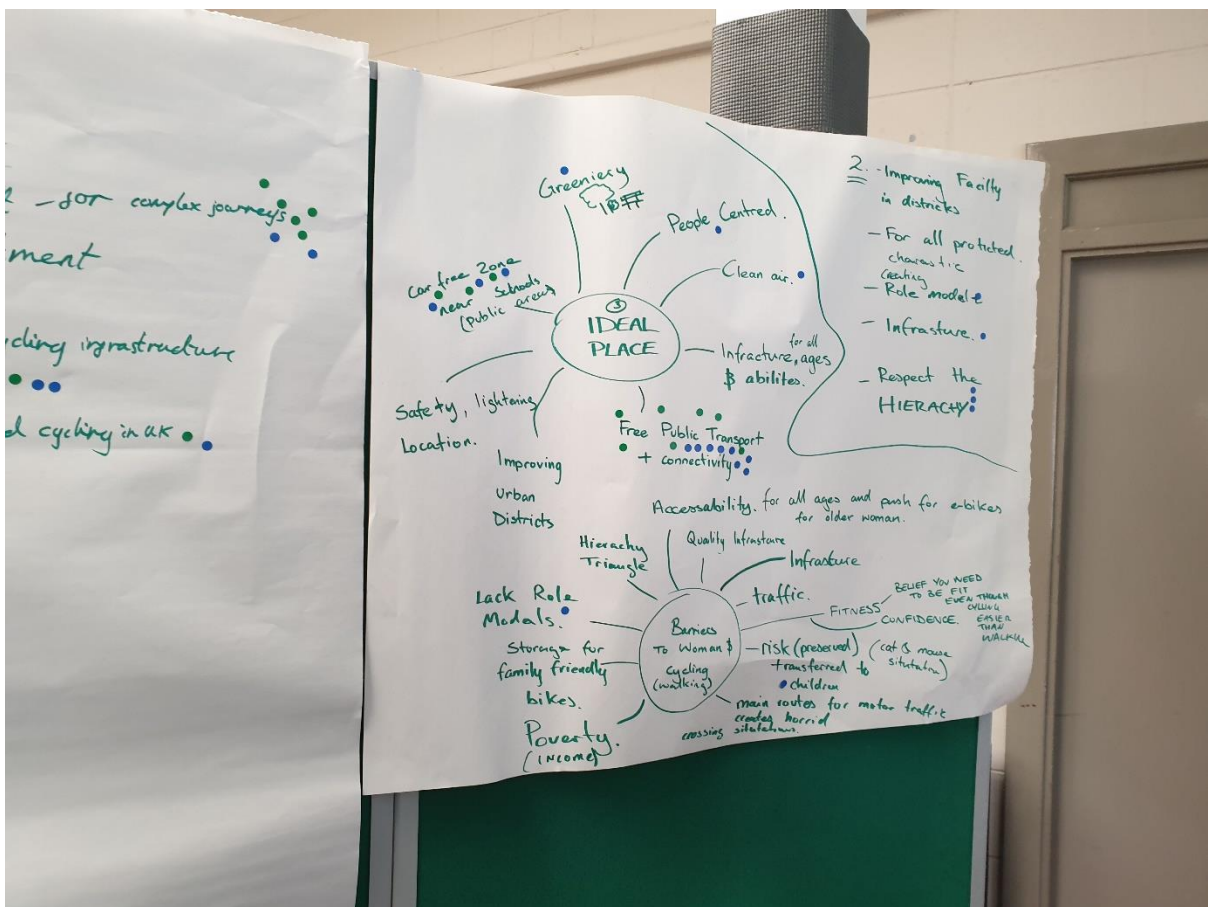 - for complex journeys
ment
cling ingrastructure
d cycling in UK
Greeniery
People Centred.
Clean air.
Car free Zone
near Schools
(public areas)
③
IDEAL
PLACE
for all
Infracture, ages
& abilites.
Safety, lightning
Location.
Improving
Urban
Districts
Free Public Transport
+ connectivity
2. - Improving Facilty
in districts
- For all proticted
charestic
creating
- Role model
- Infrasture.
- Respect the
HIERACHY
Accessability. for all ages and push for e-bikes
for older woman.
Hierachy
Triangle
Quality Infrasture
Infrasture
traffic.
FITNESS
BELIEF YOU NEED
TO BE FIT
EVEN THOUGH
CYLLING
EASIER
THAN
WALKING
CONFIDENCE.
Lack Role
Models.
Barriers
To Woman &
Cycling
(walking)
- risk (preserved) (cat & mouse
situtation)
transferred to
children
Storage for
family friendly
bikes.
main routes for motor traffic
creates horrid
crossing sitatations.
Poverty.
(INCOME)